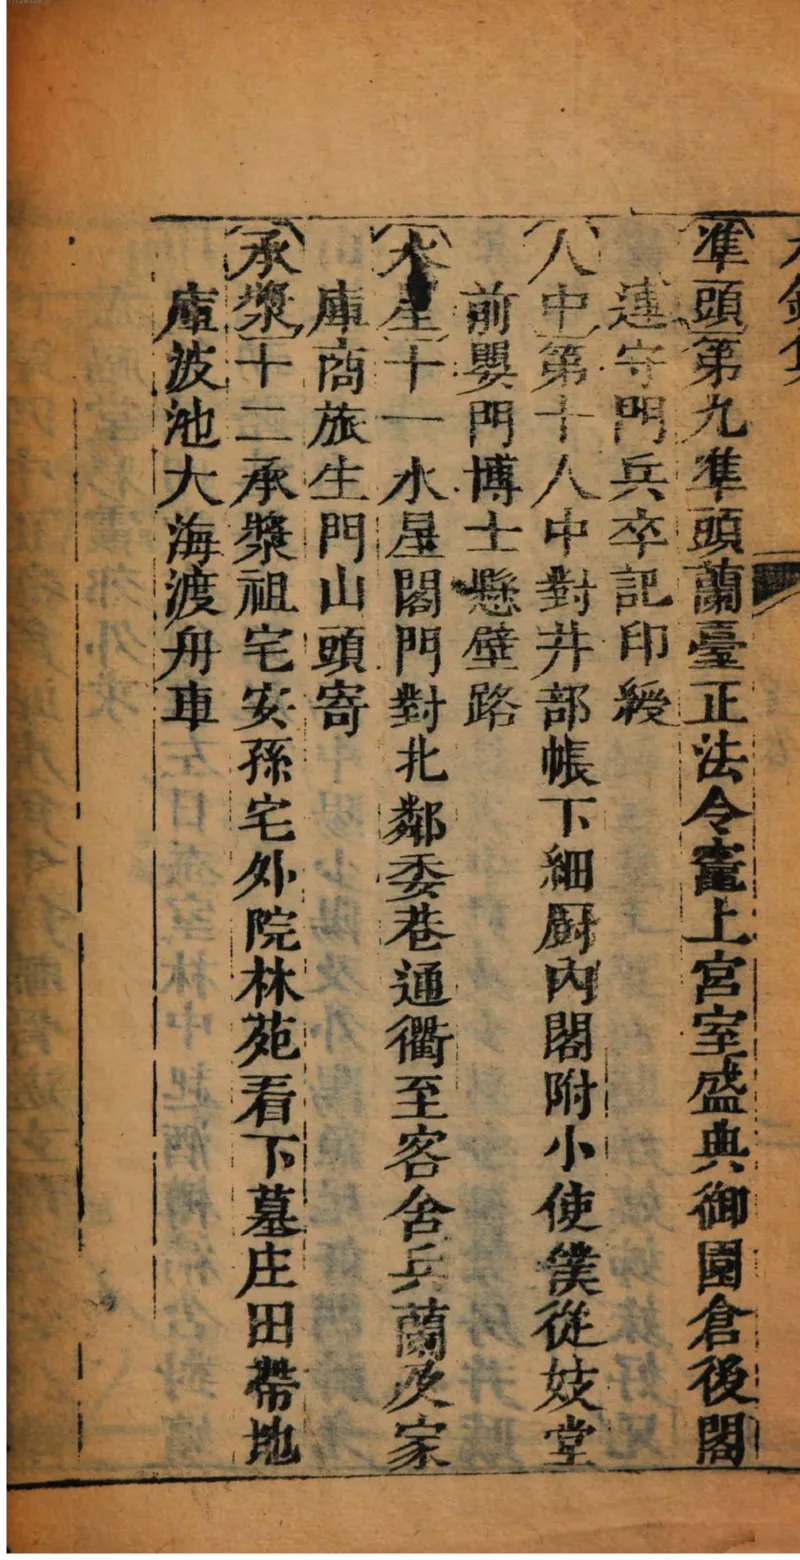 準頭第九準頭蘭臺正法令竈上宮室盛典御園倉後閣
連守門兵卒記印綬
人中第十人中對井部帳下細厨內閣附小使僕從妓堂
前嬰門博士懸壁路
水星十一水星閣門對北鄰委巷通衢至客舍兵蘭及家
庫商旅生門山頭寄
承漿十二承漿祖宅安孫宅外院林苑看下墓庄田帶地
庫波池大海渡舟車